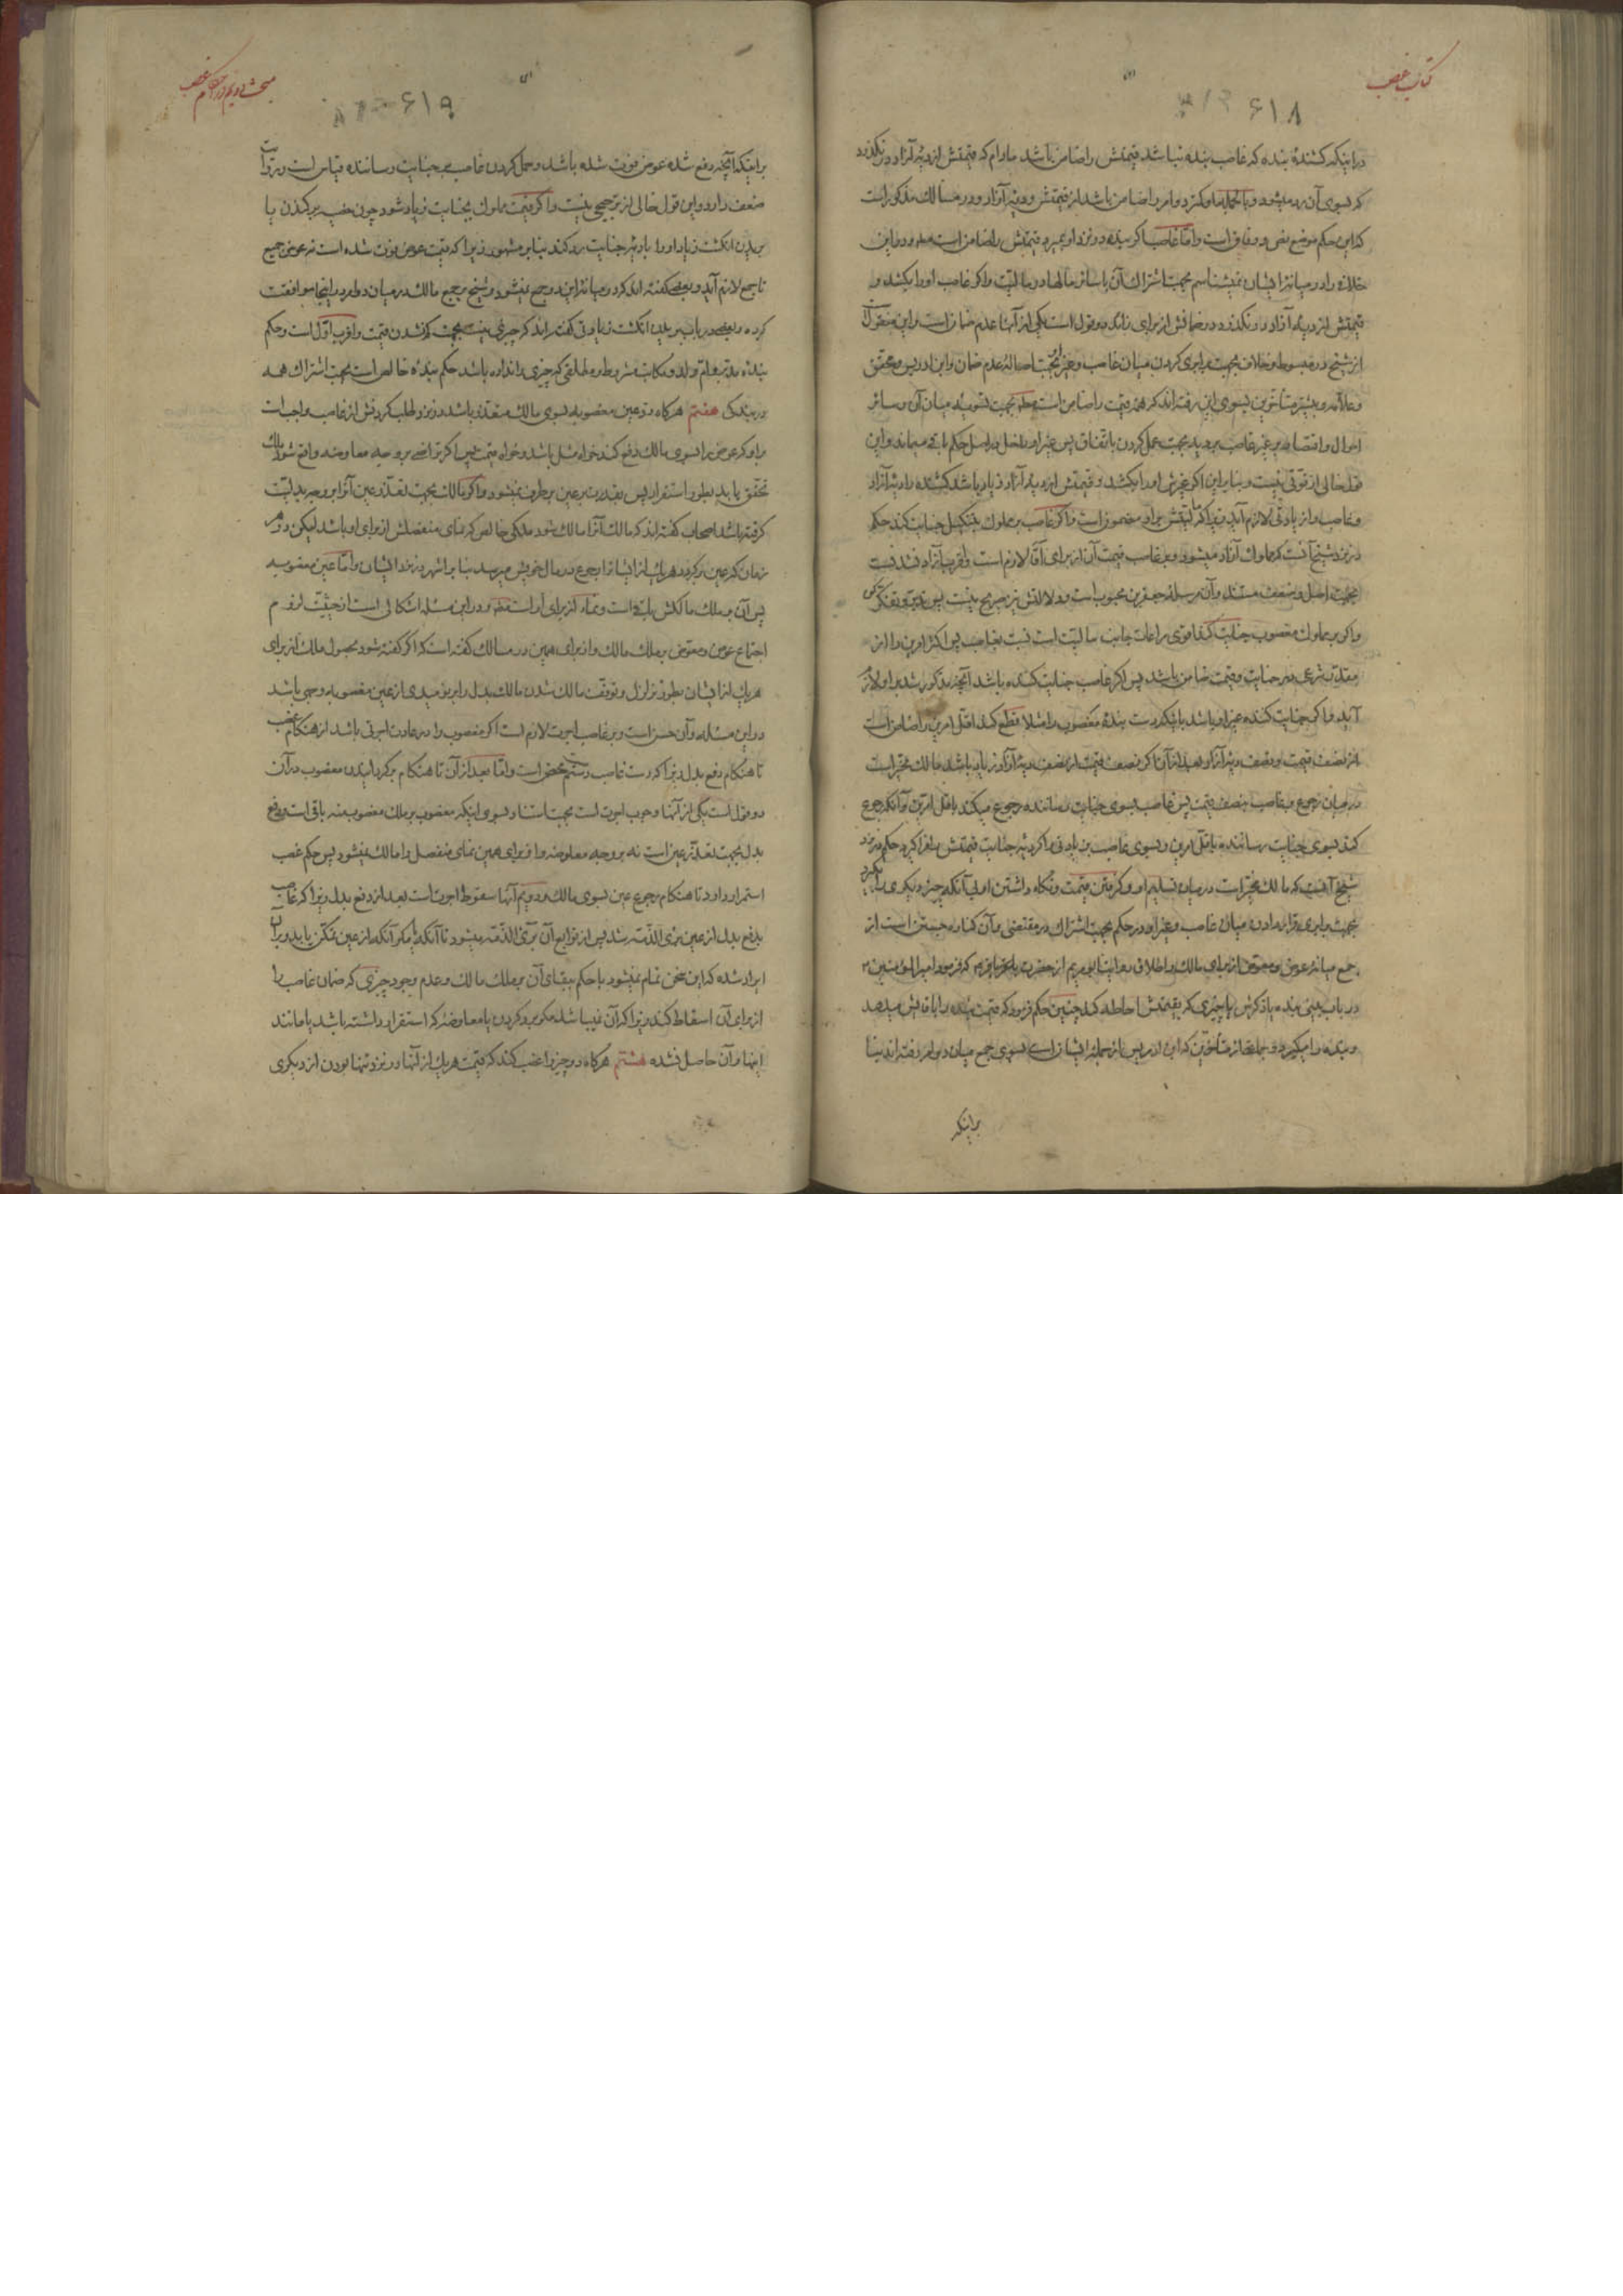 کتاب غصب
۶۱۸
در اینکه کشندهٔ بنده که غاصب بنده نباشد قیمتش را ضامن باشد مادام که قیمتش از دیهٔ آزاد در نگذرد
که بسوی آن رد میشود و بالجمله مملوک و کنیز را ضامن باشد از قیمتش و دیهٔ آزاد و در مسالک مذکور است
که این حکم موضع نص و وفاق است و اما غاصب اگر بنده در نزد او بمیرد قیمتش را ضامن است و در این
خلافی را در میانهٔ ایشان نمیشناسم بجهت اشتراک آن با سائر مالها در مالیت و اگر غاصب او را بکشد و
قیمتش از دیه آزاد در نگذرد در ضمانش از برای زائد دو قول است یکی از آنها عدم ضمان است و این منقول است
از شیخ در مبسوط و خلاف بجهت برابری کردن میان غاصب و غیر او بجهت اصالهٔ عدم ضمان و ابن ادریس و محقق
و علامه و بیشتر متأخرین بسوی این رفته‌اند که همه قیمت را ضامن است بجهت تسویه میان آن و سائر
اموال و اقتصار بر غیر غاصب بر دیه بجهت عمل کردن باتفاق پس غیر او داخل در اصل حکم باقی میماند و این
قول خالی از قوتی نیست و بنابراین اگر غیرش او را بکشد و قیمتش از دیه آزاد زیاد باشد کشنده را دیه آزاد
و غاصب را زیادتی لازم آید زیرا که مالیتش بر او مضمون است و اگر غاصب بر مملوک بتنکیل جنایت کند حکم
در نزد شیخ آنست که مملوک آزاد میشود و بر غاصب قیمت آن از برای آقا لازم است و اقرب آزاد نشدنست
بجهت اصل و ضعف مستند و آن مرسلهٔ جعفر بن محبوب است و دلالتش نیز صریح نیست
و اگر بر مملوک مغصوب جنایت کند اقوی مراعات جانب مالیت است نسبت بغاصب پس اکثر امرین را از
مقدر شرعی در جنایت و قیمت ضامن باشد پس اگر غاصب جنایت کننده باشد آنچه مذکور شد بر او لازم
آید و اگر جنایت کننده غیر او باشد باینکه دست بنده مغصوب را مثلا قطع کند اقل امرین را ضامن است
از نصف قیمت و نصف دیهٔ آزاد و بعد از آن اگر نصف قیمت از نصف دیهٔ آزاد زیاد باشد مالک مخیر است
در میان رجوع بغاصب بنصف قیمت پس غاصب بسوی جنایت رساننده رجوع میکند باقل امرین و آنکه رجوع
کند بسوی جنایت رساننده باقل امرین و بسوی غاصب بزیادتی و اگر دیه جنایت قیمتش را فرا گیرد حکم در نزد
شیخ آنست که مالک مخیر است در میان تسلیم او و گرفتن قیمت و نگاه داشتن او بی آنکه چیز دیگری بگیرد
بجهت برابری قرار دادن میان غاصب و غیر او در حکم بجهت اشتراک در مقتضی و آن کناره جستن است از
جمع میانهٔ عوض و معوض از برای مالک و اطلاق روایت ابی مریم از حضرت باقر که فرمود امیر المؤمنین
در باب بینی بنده یا ذکرش یا چیزی که بقیمتش احاطه کند چنین حکم فرمود که قیمت بنده را باقایش میدهد
و بنده را میگیرد و جماعتی از متأخرین که ابن ادریس از جمله ایشان است بسوی جمع میان دو امر رفته‌اند بنا
بر اینکه
مبحث دویم در احکام غصب
۶۱۹
بر اینکه آنچه دفع شده عوض فوت شده باشد و حمل کردن غاصب بر جنایت رساننده قیاس است و روایت
ضعف دارد و این قول خالی از ترجیحی نیست و اگر قیمت مملوک بجنایت زیاد شود چون خصیه بر کندن یا
بریدن انگشت زیاد او را با دیهٔ جنایت رد کند بنابر مشهور زیرا که قیمت عوض فوت شده است نه عوض جمیع
تا جمع لازم آید و بعضی گفته‌اند که در میانهٔ این دو جمع نمیشود و شیخ مرجع مالک در میان دو امر در اینجا موافقت
کرده و بعضی در باب بریدن انگشت زیادتی گفته‌اند که چیزی نیست بجهت کم نشدن قیمت و اقرب اول است و حکم
بنده مدبر و ام ولد و مکاتب مشروط و مطلقی که چیزی را نداده باشد حکم بندهٔ خالص است بجهت اشتراک همه
در بندگی هفتم هرگاه رد عین مغصوبه بسوی مالک متعذر باشد در نزد طلب کردنش از غاصب واجب است
بر او که عوض را بسوی مالک دفع کند خواه مثل باشد و خواه قیمت پس اگر تراضی بر وجه معاوضه واقع شود ملک
تحقق یابد بطور استقرار پس بقدرت بر عین بر طرف نمیشود و اگر مالک بجهت تعذر عین آنرا بر وجه بدلیت
گرفته باشد اصحاب گفته‌اند که مالک آنرا مالک شود ملکی خالص که نمای منفصلش از برای او باشد لیکن در هر
زمان که عین برگردد هر یک از ایشانرا رجوع در مال خویش میرسد بنابر اشهر در نزد ایشان و اما عین مغصوبه
پس آن بر ملک مالکش باقی است و نماء از برای او است و در این مسئله اشکالی است از حیثیت لزوم
اجتماع عوض و معوض بر ملک مالک و از برای همین در مسالک گفته است که اگر گفته شود بحصول ملک از برای
هر یک از ایشان بطور تزلزل و توقف مالک شدن مالک بدل را بر نومیدی از عین مغصوبه وجهی باشد
در این مسئله و آن حسن است و بر غاصب اجرت لازم است اگر مغصوب را در عادت اجرتی باشد از هنگام غصب
تا هنگام دفع بدل زیرا که دست غاصب ستم محض است و اما بعد از آن تا هنگام برگردانیدن مغصوب در آن
دو قول است یکی از آنها وجوب اجرت است بجهت استناد بسوی اینکه مغصوب بر ملک مغصوب منه باقی است و دفع
بدل بجهت تعذر عین است نه بر وجه معاوضه و از برای همین نمای منفصل را مالک میشود پس حکم غصب
استمرار دارد تا هنگام رجوع عین بسوی مالک و دویم آنها سقوط اجرت است بعد از دفع بدل زیرا که غاصب
بدفع بدل از عین بری الذمه شد پس از توابع آن بری الذمه میشود تا آنکه مگر آنکه از عین تمکن یابد و بر آن
ایراد شده که این سخن تمام نمیشود با حکم ببقای آن بر ملک مالک و عدم وجود چیزی که ضمان غاصب را
از برای آن اسقاط کند زیرا که آن نمیباشد مگر برد کردن یا معاوضه که استقرار داشته باشد یا مانند
اینها و آن حاصل نشده هشتم هرگاه دو چیز را غصب کند که قیمت هر یک از آنها در نزد تنها بودن از دیگری